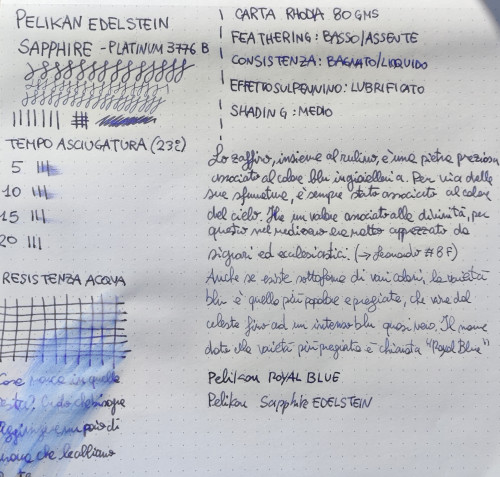 PELIKAN EDELSTEIN
SAPPHIRE - PLATINUM 3776 B
TEMPO ASCIUGATURA (23°)
5
10
15
20
RESISTENZA ACQUA
Cosa nasce in quelle
aggiungere un paio di
che
CARTA RHODIA 80 GMS
FEATHERING: BASSO/ASSENTE
CONSISTENZA: BAGNATO/LIQUIDO
EFFETTO SUL PENNINO: LUBRIFICATO
SHADING: MEDIO
Lo zaffiro, insieme al rubino, è una pietra preziosa
associato al colore blu in gioielleria. Per via delle
sue sfumature, è sempre stato associato al colore
del cielo. Ha un valore associato alle divinità, per
questo nel medioevo era molto apprezzato da
signori ed ecclesiastici. (→ Leonardo #8F)
Anche se esiste sottoforma di vari colori, la varietà
blu è quella più popolare e pregiata, che varia dal
celeste fino ad un intenso blu quasi nero. Il nome
dato alla varietà più pregiata è chiamata "Royal Blue"
Pelikan ROYAL BLUE
Pelikan Sapphire EDELSTEIN